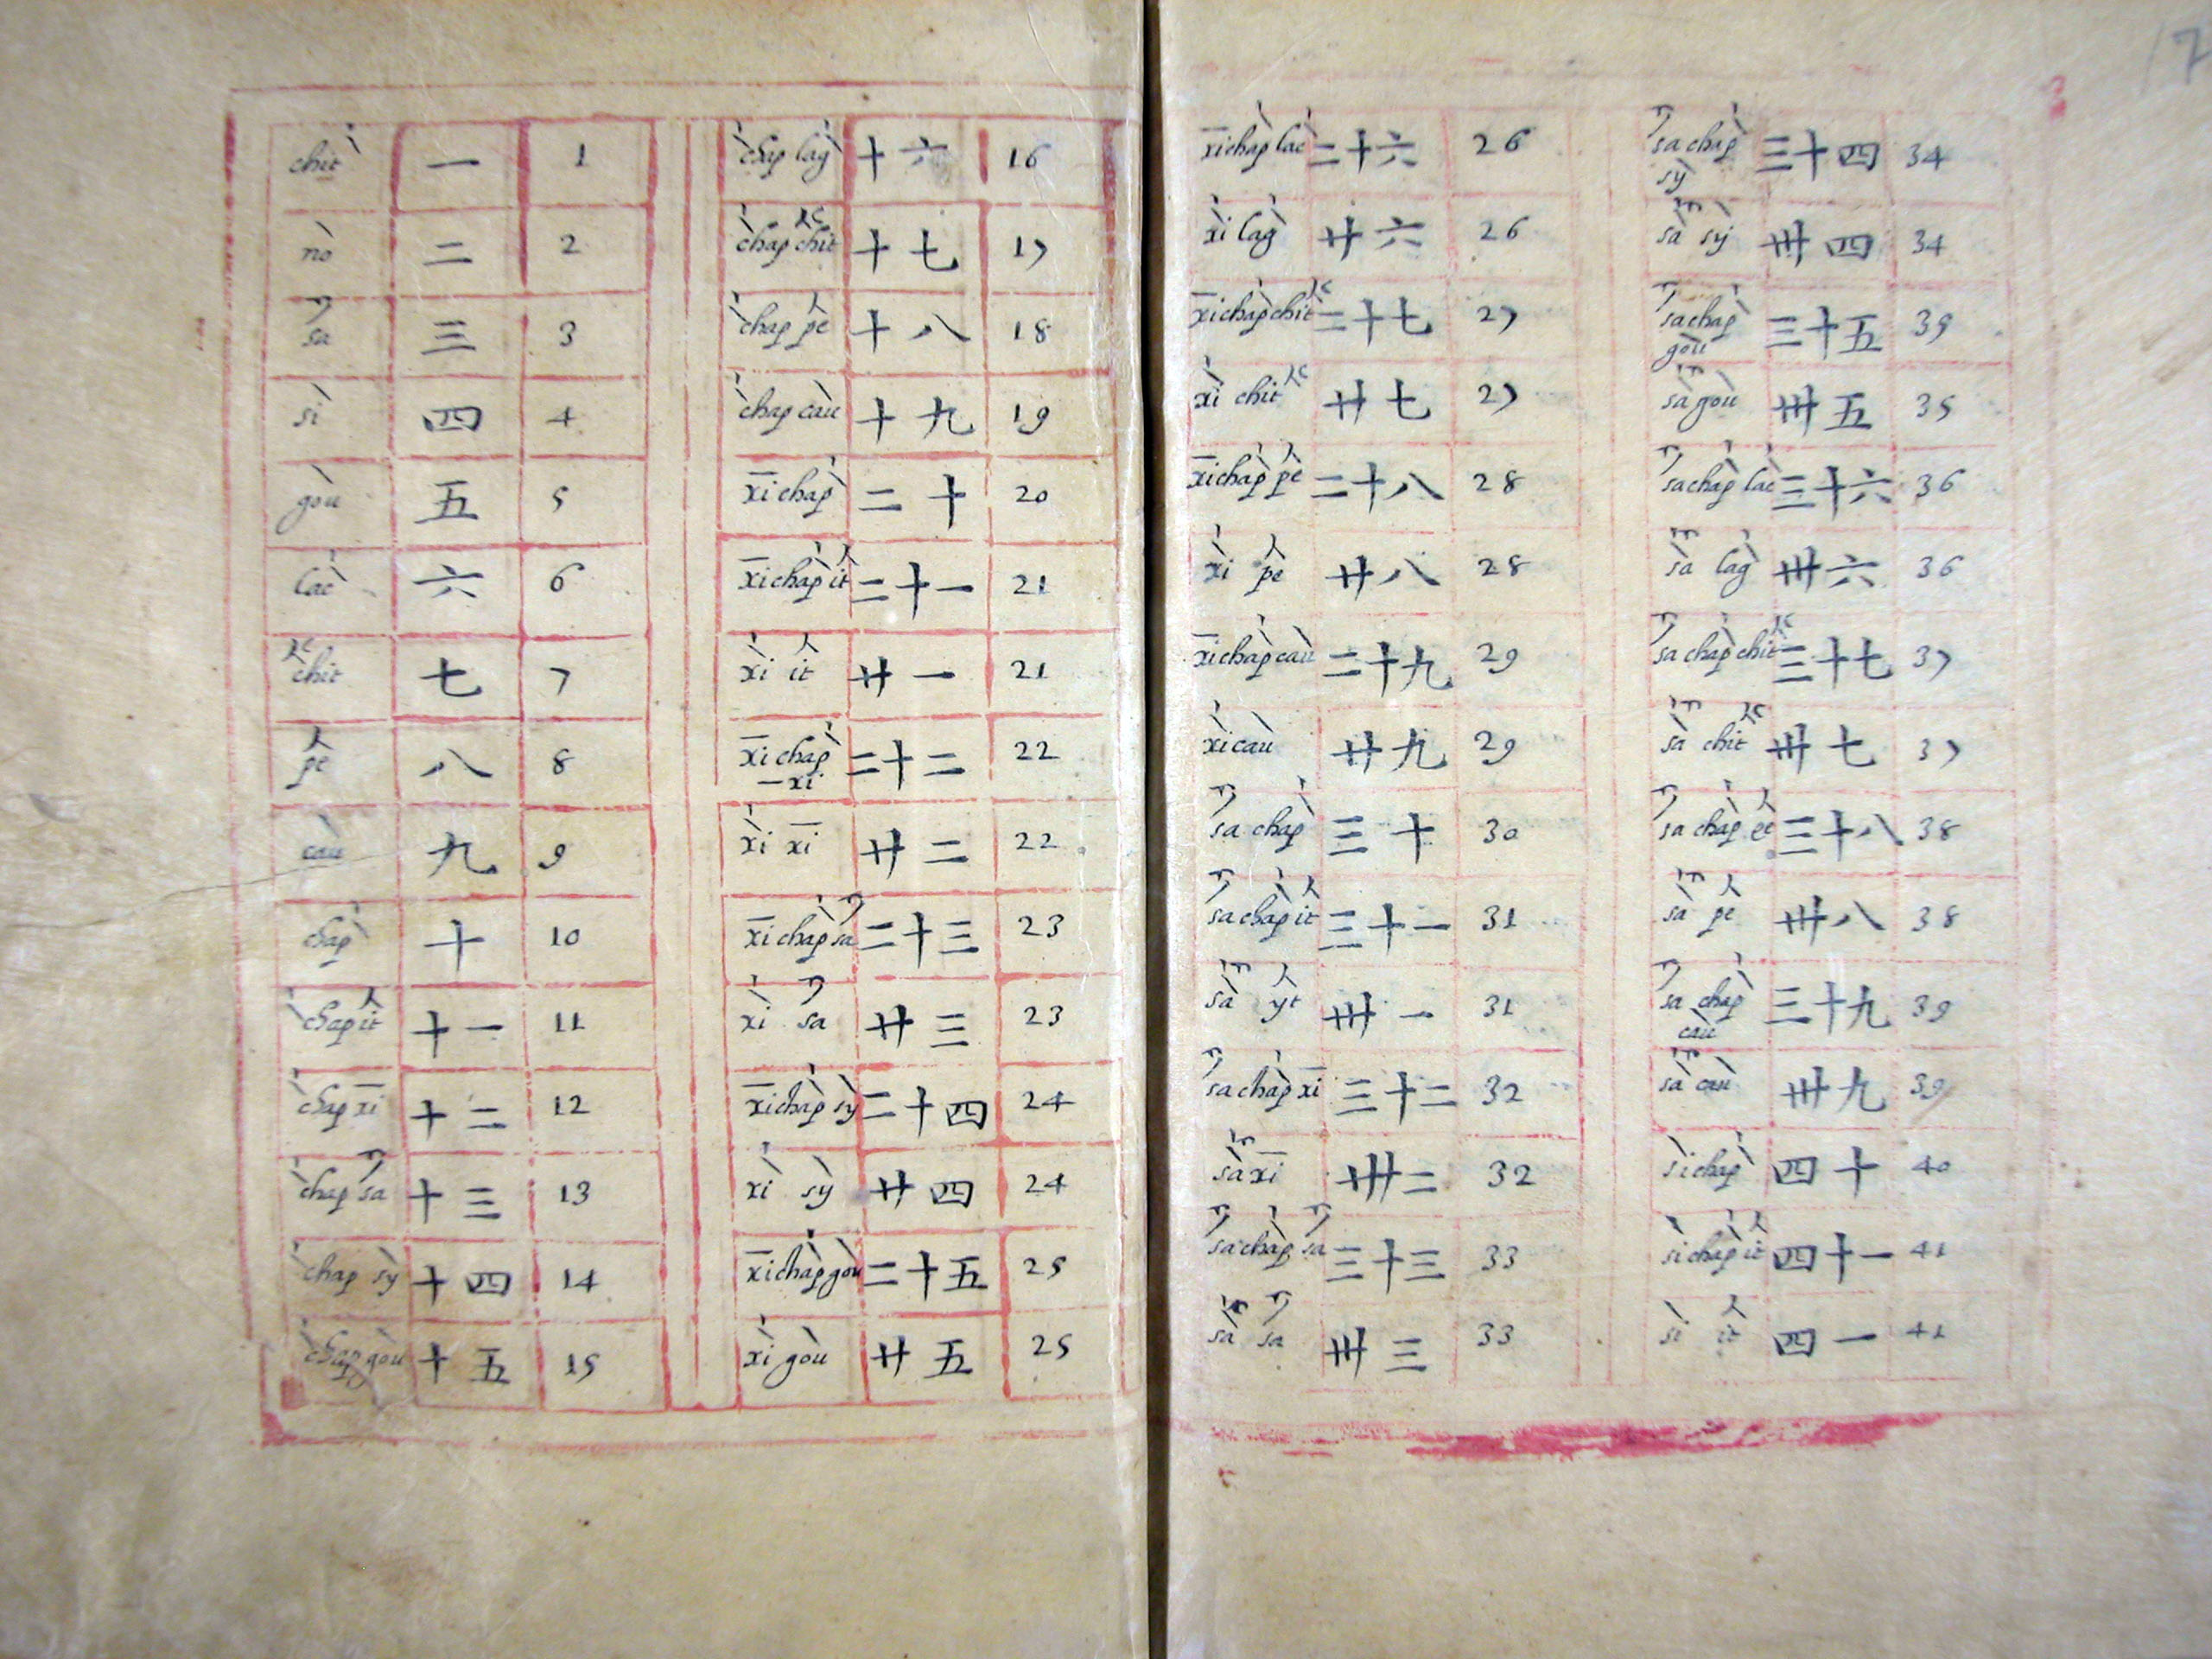 chit 一 1
nò 二 2
sa 三 3
sì 四 4
gòu 五 5
lac 六 6
chit 七 7
pe 八 8
càu 九 9
chap 十 10
chap it 十一 11
chap xi 十二 12
chap sa 十三 13
chap sỳ 十四 14
chap gòu 十五 15
chap lag 十六 16
chap chit 十七 17
chap pe 十八 18
chap càu 十九 19
xi chap 二十 20
xi chap it 二十一 21
xi it 廿一 21
xi chap 二十二 22
xi
xi xi 廿二 22
xi chap sa 二十三 23
xi sa 廿三 23
xi chap sỳ 二十四 24
xi sỳ 廿四 24
xi chap gòu 二十五 25
xi gòu 廿五 25
17
xi chap lac 二十六 26
xi lag 廿六 26
xi chap chit 二十七 27
xi chit 廿七 27
xi chap pe 二十八 28
xi pe 廿八 28
xi chap càu 二十九 29
xi càu 廿九 29
sa chap 三十 30
sa chap it 三十一 31
sa yt 卅一 31
sa chap xi 三十二 32
sa xi 卅二 32
sa chap sa 三十三 33
sa sa 卅三 33
sa chap 三十四 34
sỳ
sa sỳ 卅四 34
sa chap 三十五 35
gòu
sa gòu 卅五 35
sa chap lac 三十六 36
sa lag 卅六 36
sa chap chit 三十七 37
sa chit 卅七 37
sa chap pe 三十八 38
sa pe 卅八 38
sa chap 三十九 39
càu
sa càu 卅九 39
sì chap 四十 40
sì chap it 四十一 41
sì it 四一 41